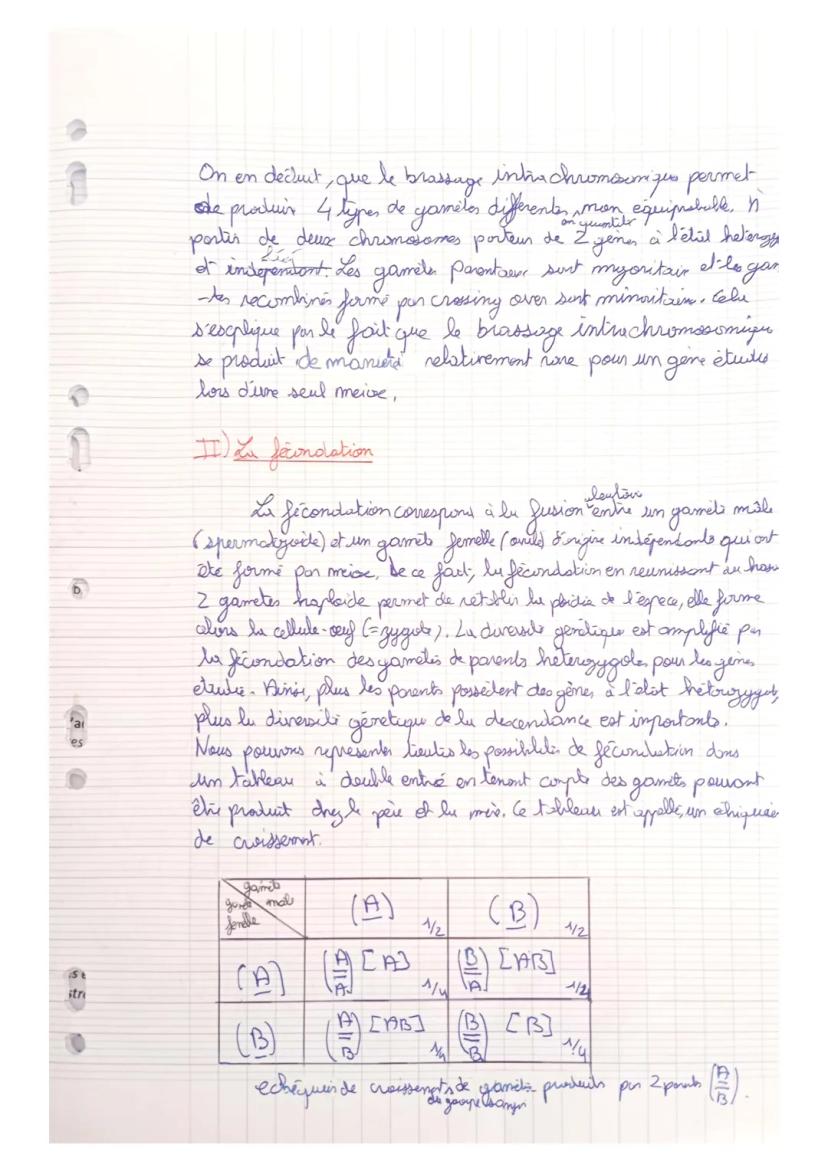 On en déduit, que le brassage intrachromosomiques permet
de produire 4 types de gamètes differentes, non équiprobable, à
en quantité
partir de deux chromosomes porteur de 2 gènes à l'état hétérozy
Liés
et indépendant. Les gamètes parentaux sont majoritair et les gam
-tes recombinés formé par crossing over sont minoritaire. Cela
s'esxplique par le fait que le brassage intrachromosomique
se produit de manière relativement rare pour un gène étudié
lors d'une seul meiose,
II) La fécondation
La fécondation correspond à la fusion entre un gamète mâle
(spermatozoïde) et un gamète femelle (ovule) d'origine indépendante qui ont
été formé par meiose, De ce fait, la fécondation en reunissant au hasa
2 gametes haploide permet de rétablir la ploidie de l'espece, elle forme
alors la cellule-œuf (=zygote). La diversité génétique est amplifié par
la fécondation des gamètes de parents hétérozygoles pour les gènes
étudié. Ainsi, plus les parents possèdent des gènes à l'état hétérozygote,
plus la diversité génetique de la descendance est importante.
Nous pouvons représenter toutes les possibilités de fécondation dans
un tableau à double entré en tenant compte des gamètes pouvant
être produit chez le père et la mère. Ce tableau est appellé, un échiquier
de croissement.
gamète
mal
femelle
(A) 1/2 (B) 1/2
(A) (A/A) [A] 1/4 (B/A) [AB] 1/4
(B) (A/B) [AB] 1/4 (B/B) [B] 1/4
echéquier de croissements de gamète produits par 2 parents (A/B).
du groupe sanguin
b
'ai
es
is e
stra